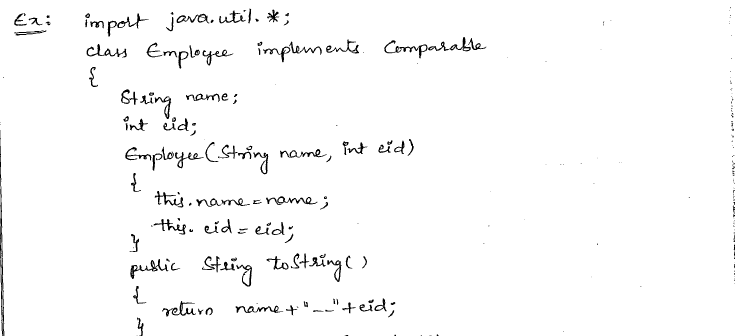 Ex: import java.util.*;
class Employee implements Comparable
{
String name;
int eid;
Employee(String name, int eid)
{
this.name=name;
this.eid=eid;
}
public String toString()
{
return name+"--"+eid;
}